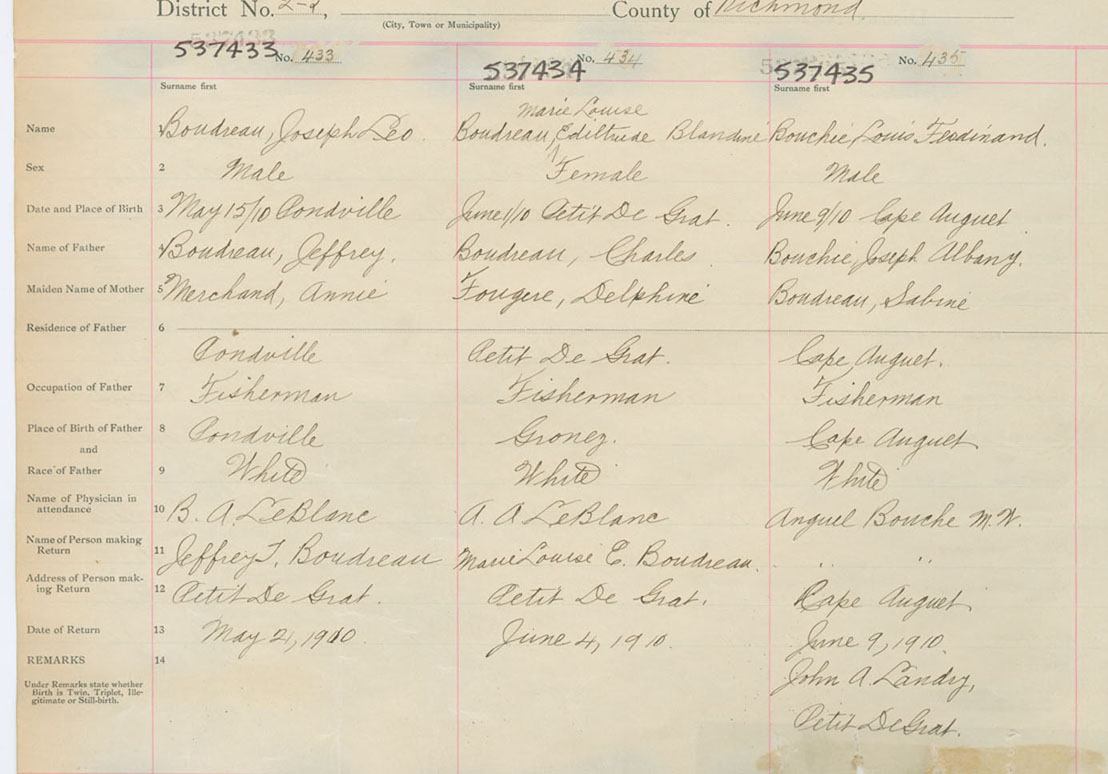 District No. 2-2, County of Richmond
(City, Town or Municipality)
537433 No. 433 537434 No. 434 537435 No. 435
Surname first Surname first Surname first
Marie Louise
Name 1 Boudreau, Joseph Leo. Boudreau, Ediltrude Blandine Bouchie, Louis Ferdinand.
Sex 2 Male Female Male
Date and Place of Birth 3 May 15/10 Pondville June 1/10 Petit De Grat. June 9/10 Cape Auguet
Name of Father 4 Boudreau, Jeffrey. Boudreau, Charles Bouchie, Joseph Albany.
Maiden Name of Mother 5 Merchand, Annie Fougere, Delphine Boudreau, Sabine
Residence of Father 6
Pondville Petit De Grat. Cape Auguet.
Occupation of Father 7 Fisherman Fisherman Fisherman
Place of Birth of Father 8 Pondville Cape Auguet
and
Race of Father 9 White White White
Name of Physician in
attendance 10 B. A. LeBlanc A. A. LeBlanc Anguel Bouche M.W.
Name of Person making
Return 11 Jeffrey T. Boudreau Marie Louise E. Boudreau. " "
Address of Person mak-
ing Return 12 Petit De Grat. Petit De Grat. Cape Auguet
Date of Return 13 May 21, 1910. June 4, 1910. June 9, 1910.
REMARKS 14
John A. Landry,
Under Remarks state whether
Birth is Twin, Triplet, Ille-
gitimate or Still-birth.
Petit De Grat.